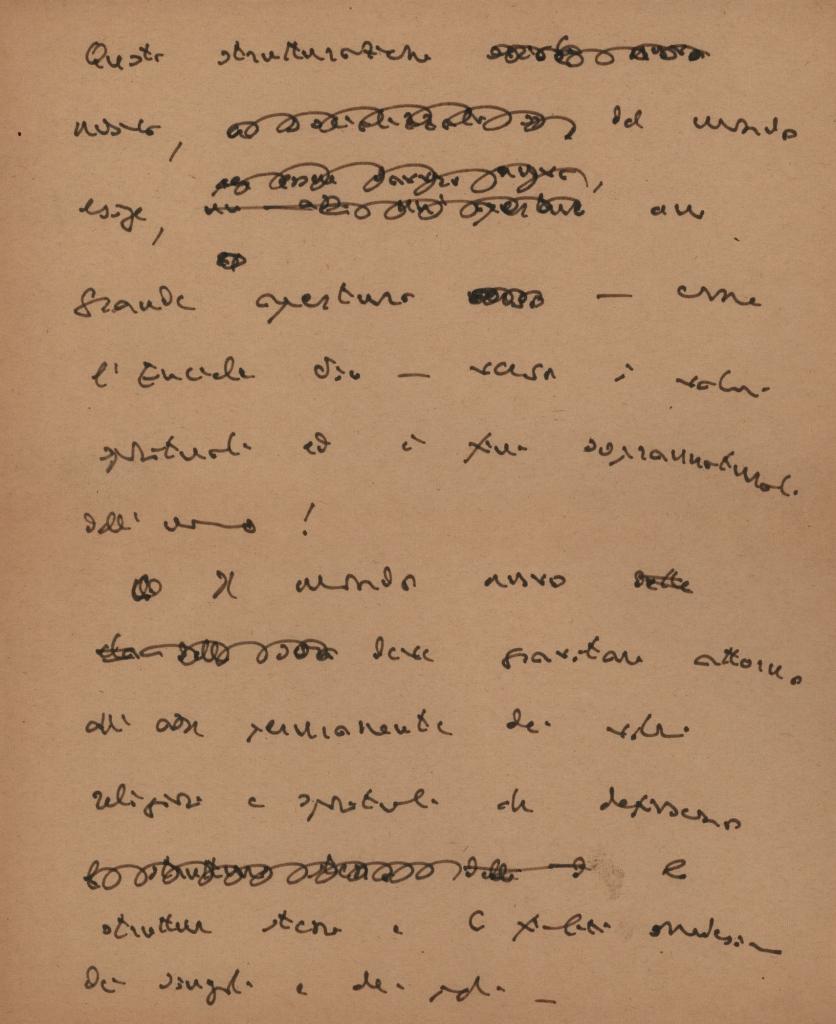 Questa strutturazione
nuova, del mondo
esige, una
grande apertura — come
l'Enciclica dice — verso i valori
spirituali ed i fini soprannaturali
dell'uomo!
Il mondo nuovo
deve gravitare attorno
all'asse permanente dei valori
religiosi e spirituali che definiscono
la
struttura stessa e le finalità medesime
dei singoli e dei popoli —